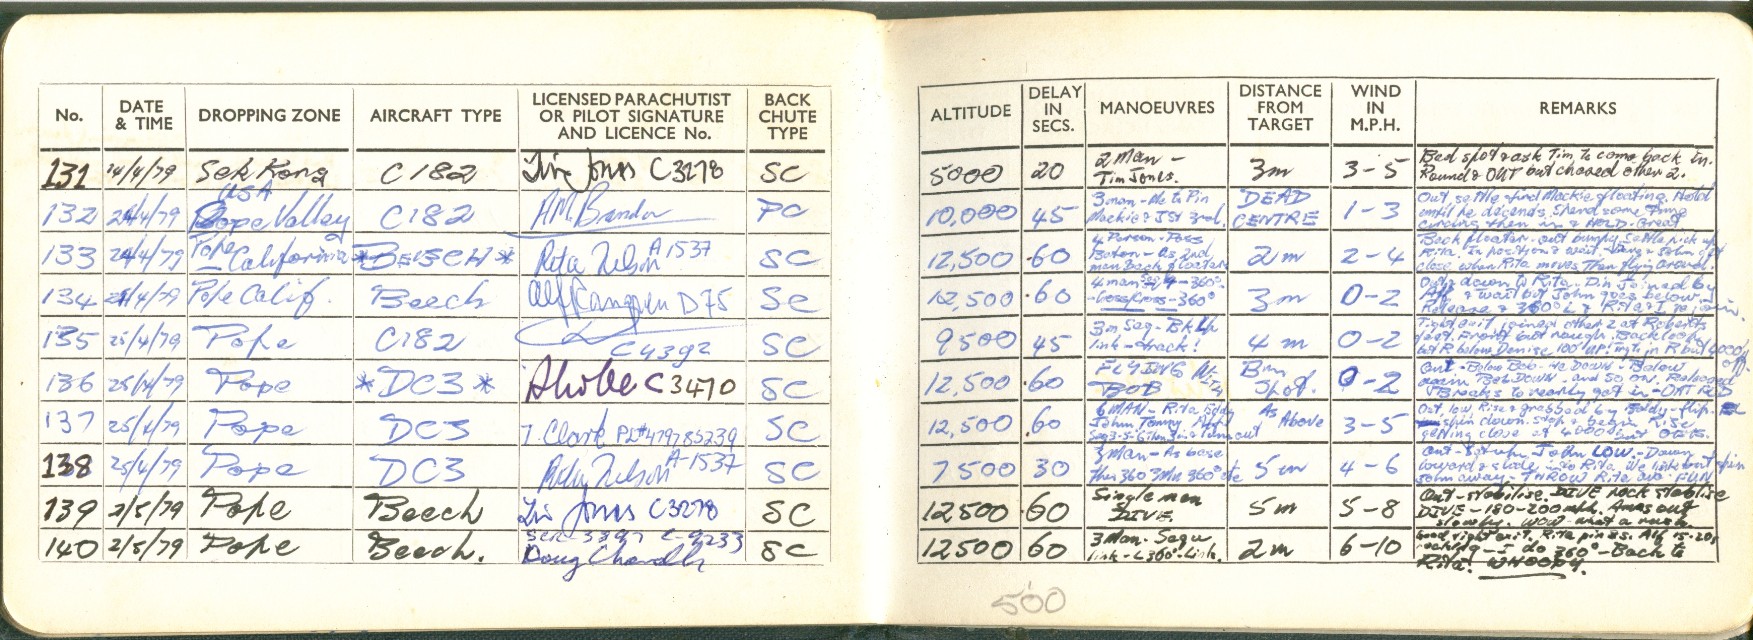 No. DATE & TIME DROPPING ZONE AIRCRAFT TYPE LICENSED PARACHUTIST OR PILOT SIGNATURE AND LICENCE No. BACK CHUTE TYPE ALTITUDE DELAY IN SECS. MANOEUVRES DISTANCE FROM TARGET WIND IN M.P.H. REMARKS
131 24/4/79 Sek Kong C182 Tim Jones C3278 SC 5000 20 2 Man - Tim Jones. 3m 3-5 Bad spot & ask Tim to come back in. Round & OUT but chased other 2.
132 24/4/79 USA Pope Valley C182 A.M. Brandon PC 10,000 45 3 man - Me to Pin Mackie & I st 3rd. DEAD CENTRE 1-3 Out, settle & find Mackie floating. Hold until he descends. Spend some time circling then in & HOLD. Great
133 24/4/79 Pope California *BEECH* Rita Nelson A1537 SC 12,500 60 4 Person - Pass Baton - as 2nd man Back floater 2m 2-4 Back floater - out bumpy settle pick up Rita. In position & wait - close when Rita moves. Then flying around.
134 24/4/79 Pope Calif. Beech D75 SC 12,500 60 4 man - 360° - 360° 3m 0-2 Out & down to Rita. Pin. Joined by Alf & wait but John goes below. Release & 360° L & Rita & I rejoin.
135 25/4/79 Pope C182 C4392 SC 9500 45 3m Seq - Bk Up link - track! 4m 0-2 Tight exit joined other 2 at Roberts feet. Front but rough. Backloop but R below Denise 100' UP! in R but 4000'
136 25/4/79 Pope *DC3* C3470 SC 12,500 60 FLYING BOB 8m Spot. 0-2 Out - Below Bob - He Down - Below again Bob DOWN - and so on. Released Breaks to nearly get in -
137 25/4/79 Pope DC3 T. Clark PL#479785239 SC 12,500 60 6 MAN - Rita, Eddy John, Tommy, Alf As Above 3-5 Out, low. Rise & grabbed by Eddy - flip. spin down. stop & begin Rise getting close at 4000' but
138 25/4/79 Pope DC3 Rita Nelson A-1537 SC 7500 30 3 Man - As base then 360 3 Man 360° 5m 4-6 Out - Set up. John LOW. - Down toward & slide into Rita. We link but spin John away. THROW Rita Out - FUN
139 2/5/79 Pope Beech Tim Jones C3278 SC 12500 60 Single man DIVE. 5m 5-8 Out - stabilise DIVE rock stabilise DIVE - 180-200 mph. Arms out slowly. WOW what a rush.
140 2/5/79 Pope Beech. Doug Chandler SC 12500 60 3 Man - Sequ link - L 360° - Link. 2m 6-10 Good tight exit. Rita pin 8s. Alf 15-20s rocking - I do 360° - Back to Rita! WHOOPY.
500